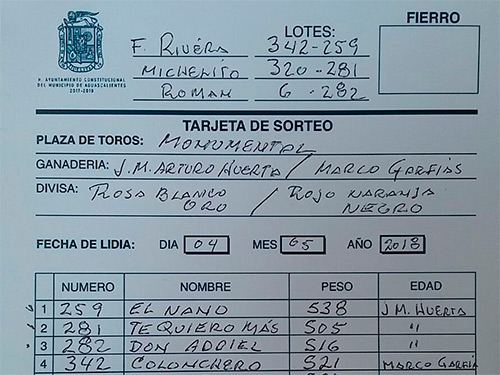 FIERRO
LOTES:
F. RIVERA 342-259
MICHELITO 320-281
ROMAN 6-282
H. AYUNTAMIENTO CONSTITUCIONAL
DEL MUNICIPIO DE AGUASCALIENTES
2017-2019
TARJETA DE SORTEO
PLAZA DE TOROS: MONUMENTAL
GANADERIA: J.M. ARTURO HUERTA / MARCO GARFIAS
DIVISA: ROSA BLANCO ORO / ROJO NARANJA NEGRO
FECHA DE LIDIA: DIA 04 MES 05 AÑO 2018
NUMERO NOMBRE PESO EDAD
1 259 EL NANO 538 J.M. HUERTA
2 281 TE QUIERO MÁS 505 "
3 282 DON ADDIEL 516 "
4 342 COLONCHERO 521 MARCO GARFIA